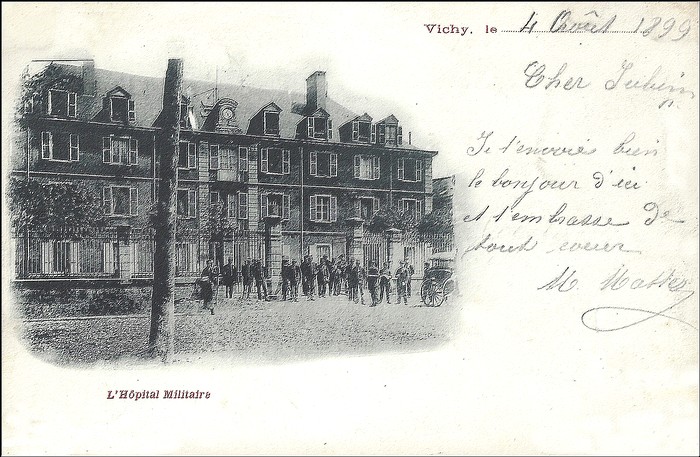 Vichy, le 4 Août 1899
Cher
Je t'envoie bien
le bonjour d'ici
et t'embrasse de
tout coeur
M.
L'Hôpital Militaire